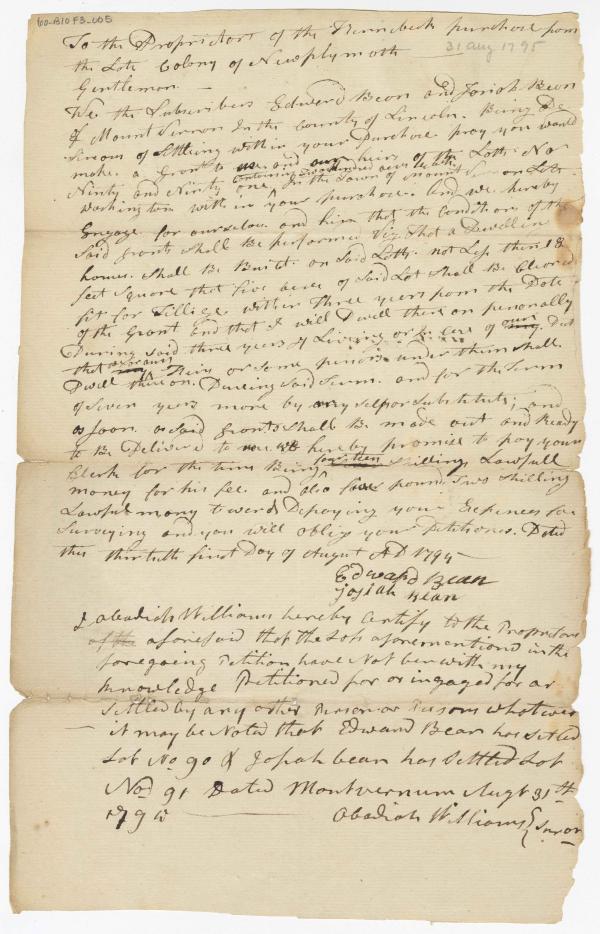 60-B10 F3-005
To the Propriators of the Kennebeck purchase from
the Late Colony of Newplymoth
31 Aug 1795
Gentlemen
We the Subscribers Edward Bean and Josiah Bean
of Mount Vernon In the County of Lincoln. Being De
sirious of Settling within your Purchase pray you would
make a Grant to us and our heirs of the Lotts No
Ninty and Ninty one In the Town of Mount Vernon Late
containing two hundred acres
Washington with in your purchase. And we hereby
Engage for ourselves and heirs that the Conditions of the
Said grants Shall Be performed Viz That a Dwellin
house Shall Be Built on Said Lotts not Less then 18
feet Square that five acres of Said Lot Shall Be Cleared
fit for Tillige within three years from the Date
of the Grant And that I will Dwell there on personally
During said three years if Living or in Case of our Det
that our heirs or some persons under them Shall
Dwell there on During Said Term. and for the Term
of Seven years more by my Self or Substitute; and
as Soon as Said grants Shall Be made out and Ready
to Be Deliverd to we hereby promise to pay your
Clerk for the time Being shilling Lawfull
money for his fee and also pound Two Shilling
Lawful mony towards Defraying your Expences for
Surveying and you will oblige your Petitiones. Dated
this thirteth first Day of August AD 1795
Edward Bean
Josiah Bean
I obadiah Williams hereby Certify to the Propriators
aforesaid that the Lots aforementiond in the
foregoing Petition have Not ben with my
Knowledge Petitioned for or ingaged for or
Settled by any other Person or Persons whatever
it may be Noted that Edward Bean has Settled
Lot No 90 & Josiah bean has Settled Lot
No 91 Dated Montvernum Augt 31th
1795
Obadiah Williams